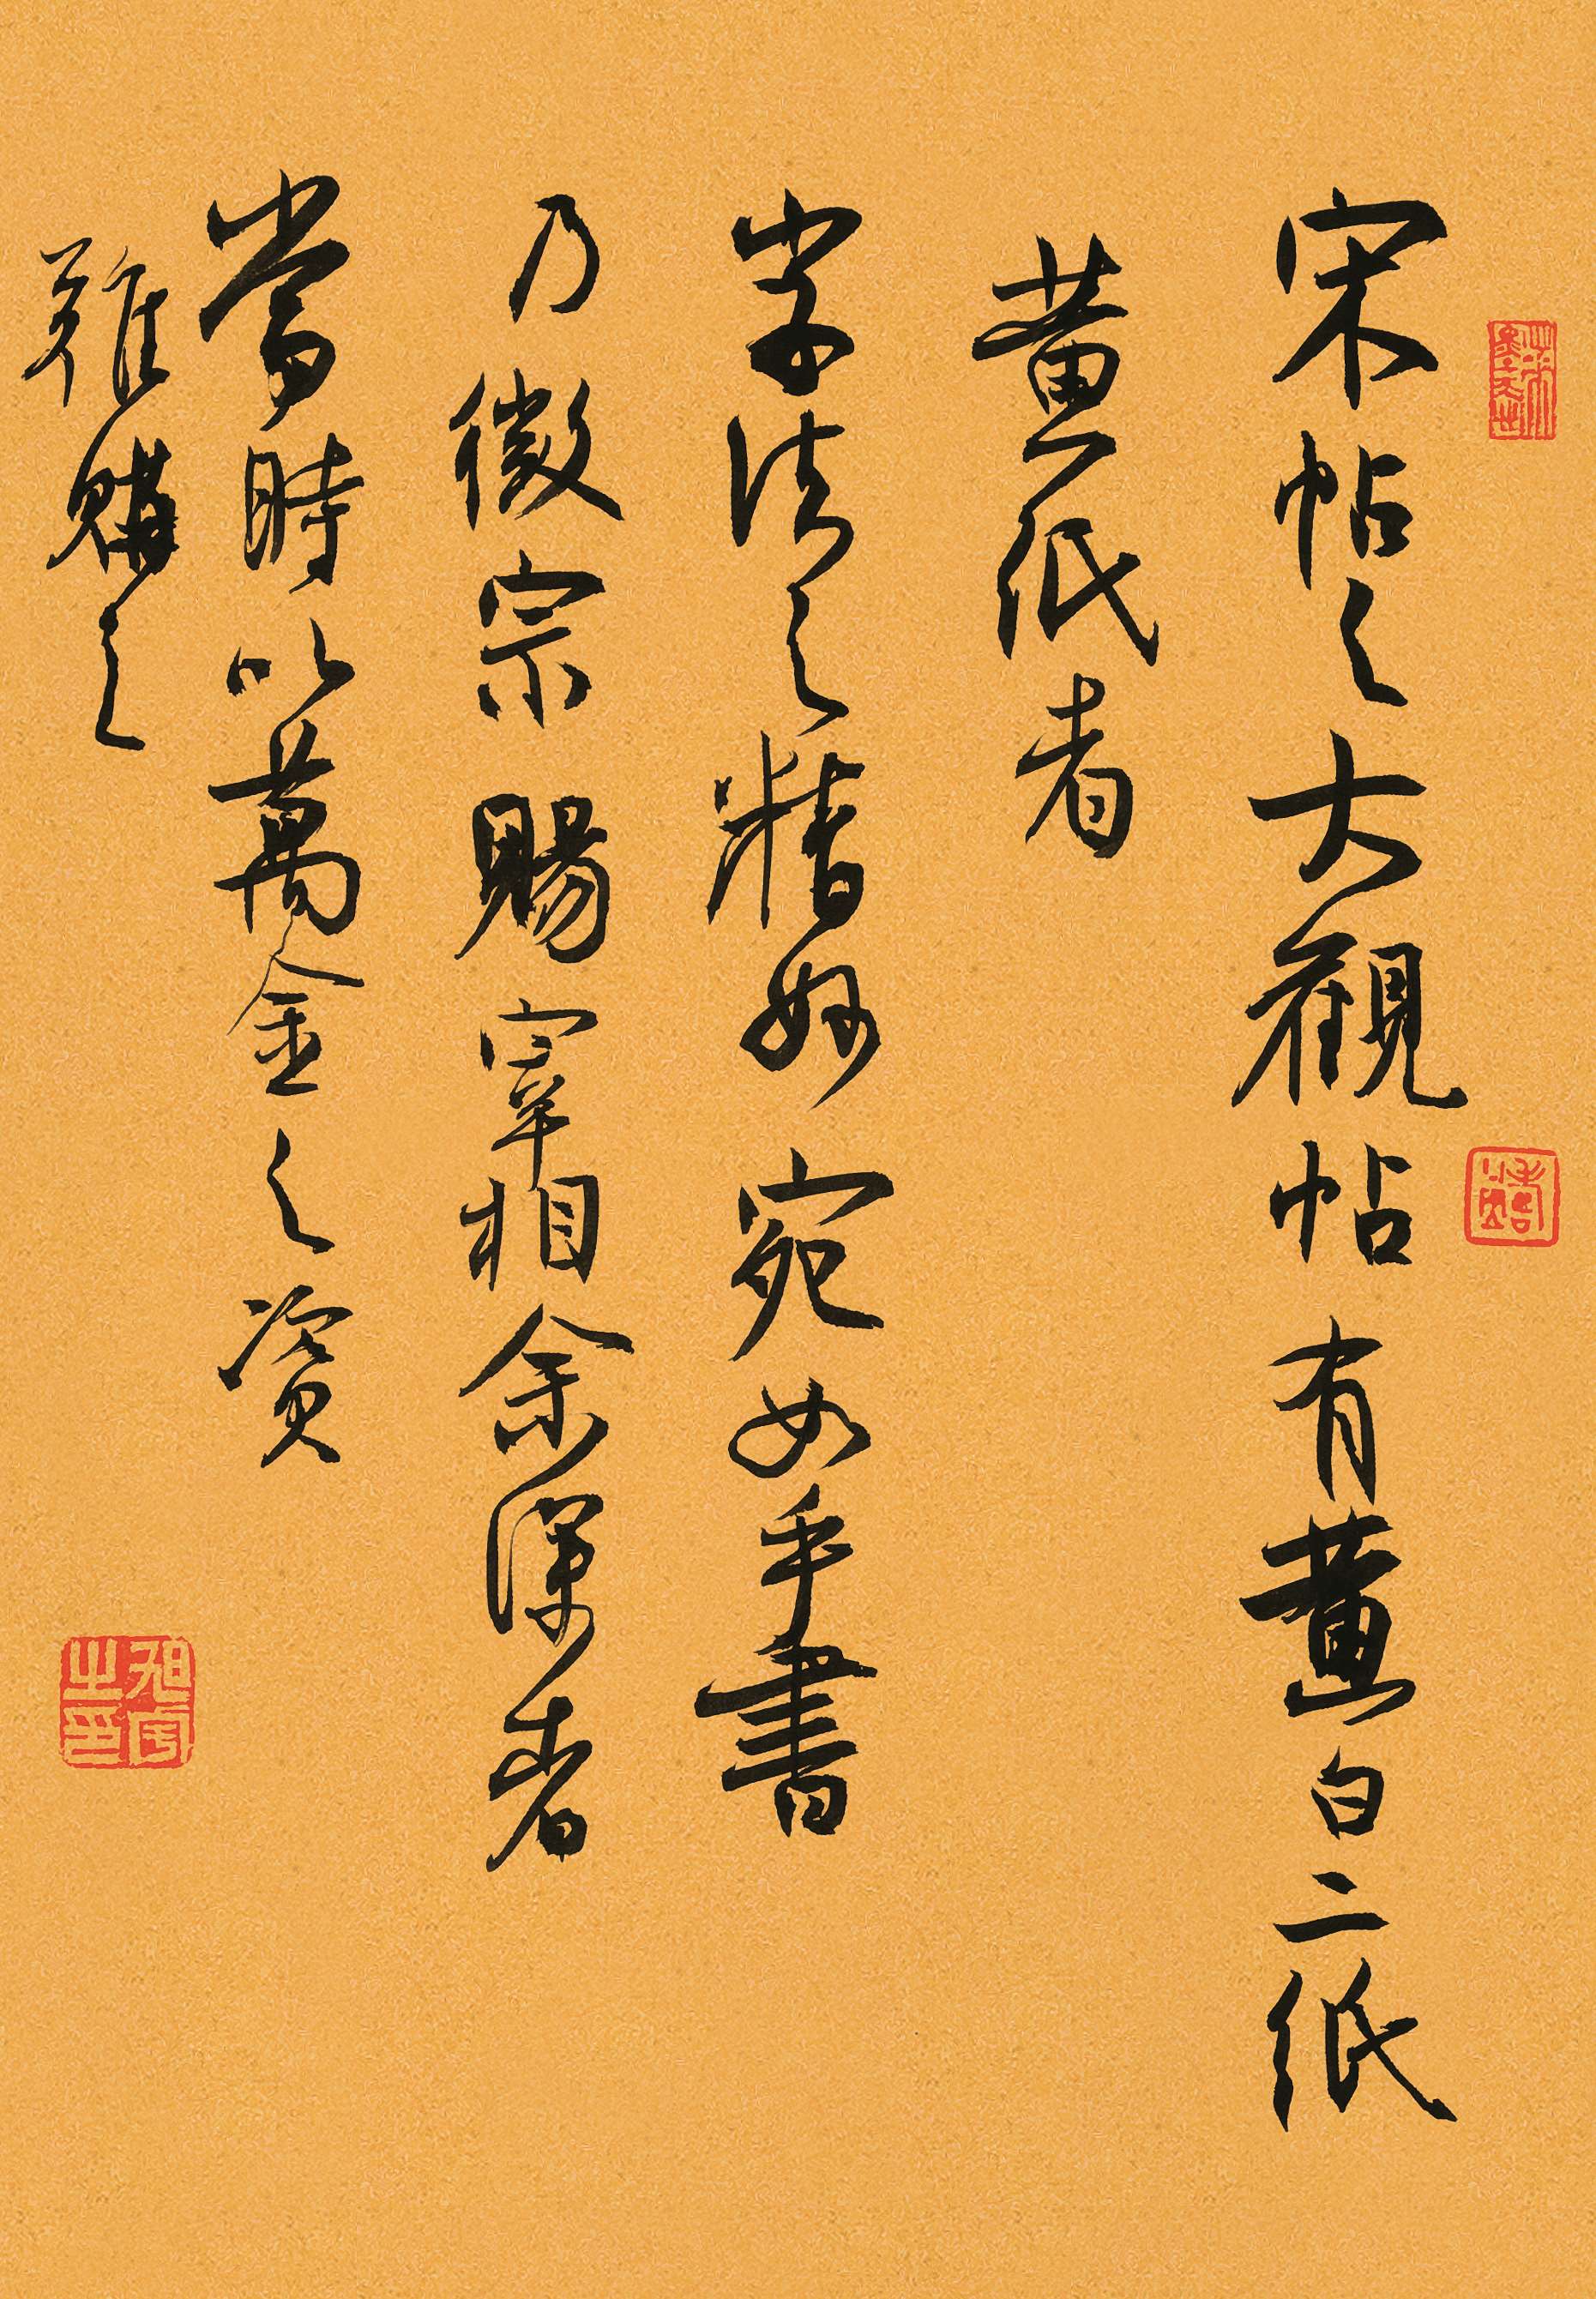 宋帖之大觀帖有黄白二紙
黄紙者
字法之精妙宛如手書
乃徽宗賜宰相余深者
當時以萬金之資
難購之
旭宇之印